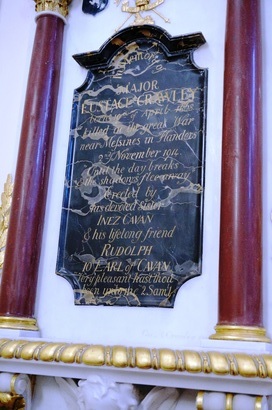 In memoriam
MAJOR
EUSTACE CRAWLEY
of April 1868
killed in the great War
near Messines in Flanders
2nd November 1914
Until the day breaks
& the shadows flee away
Erected by
his devoted sister
INEZ CAVAN
& his lifelong friend
RUDOLPH
10th EARL of CAVAN
Very pleasant hast thou
been unto me 2. Sam. I